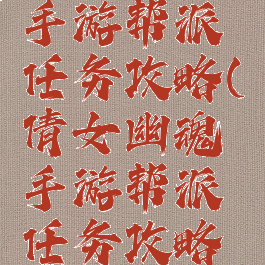 手游帮派
任务攻略(
倩女幽魂
手游帮派
任务攻略